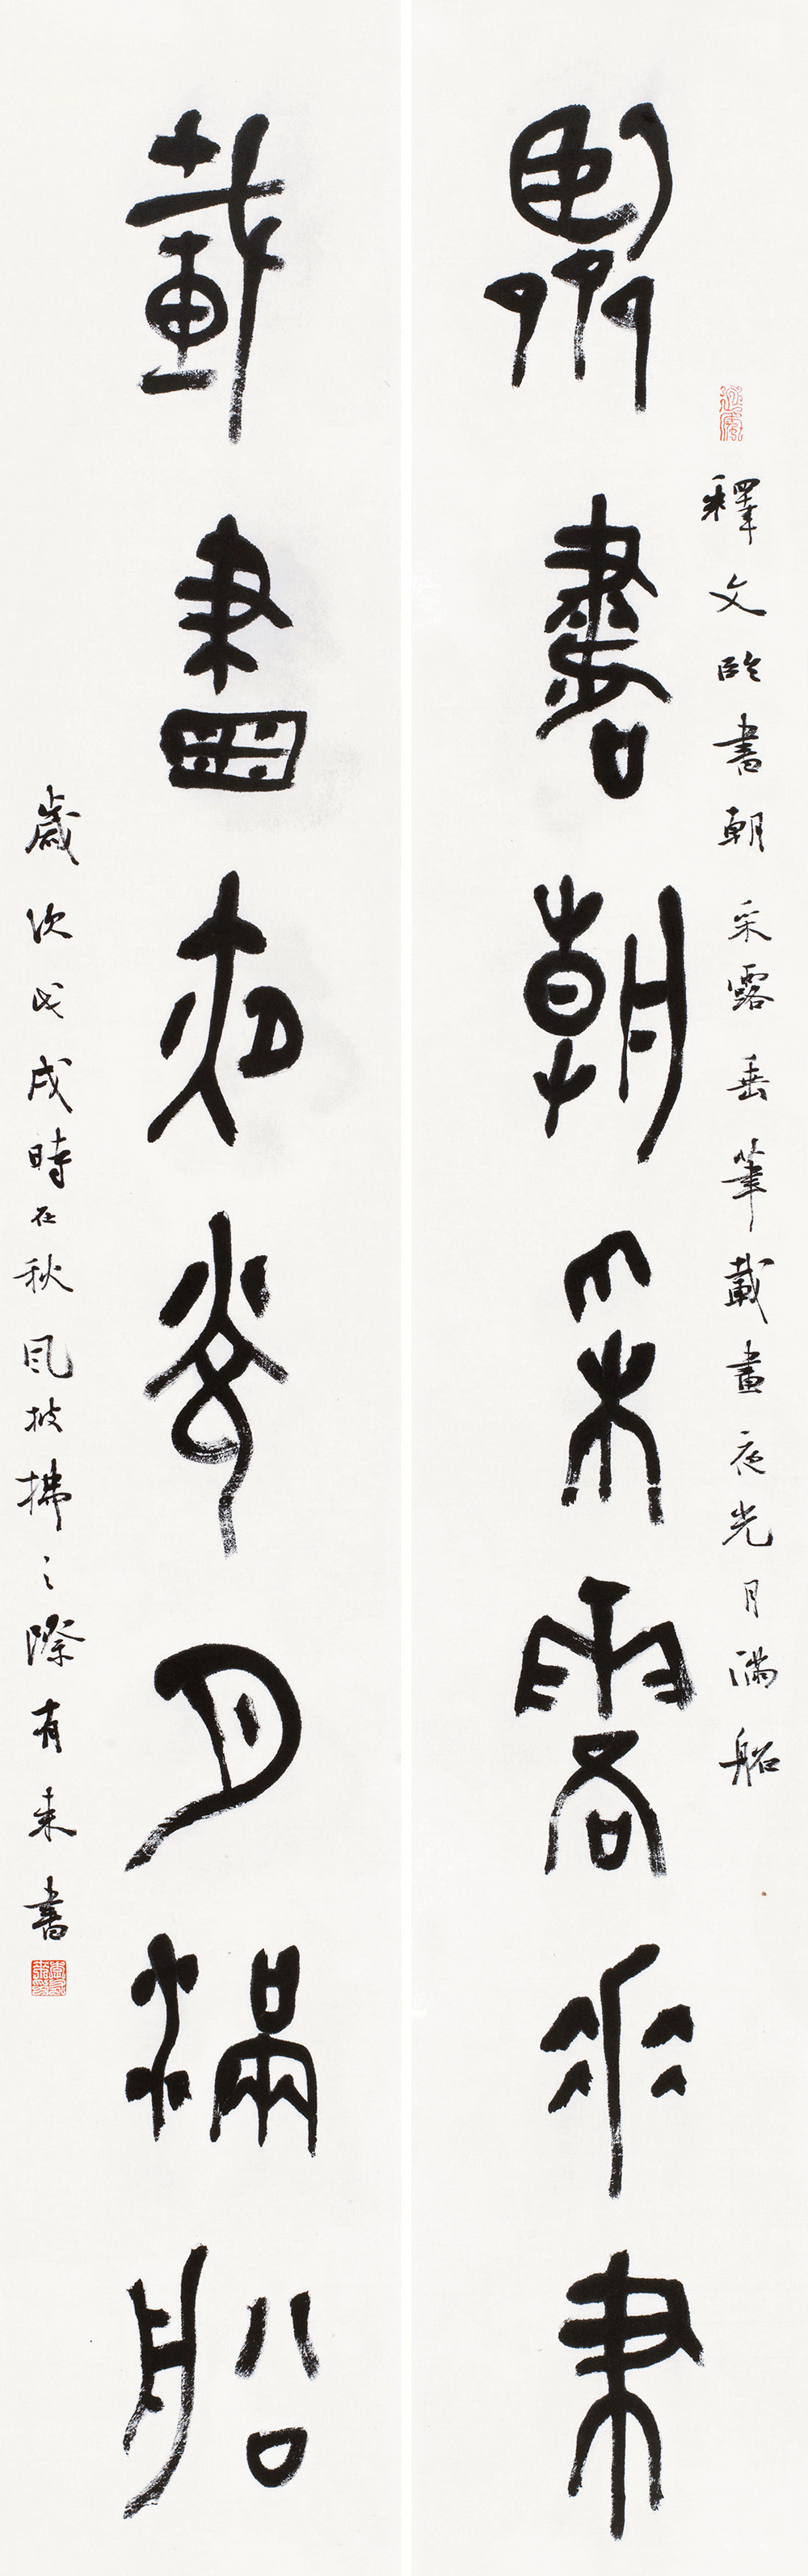 臨書朝采露垂筆
釋文臨書朝采露垂筆載畫夜光月滿船
載畫夜光月滿船
歲次戊戌時在秋風披拂之際有來書